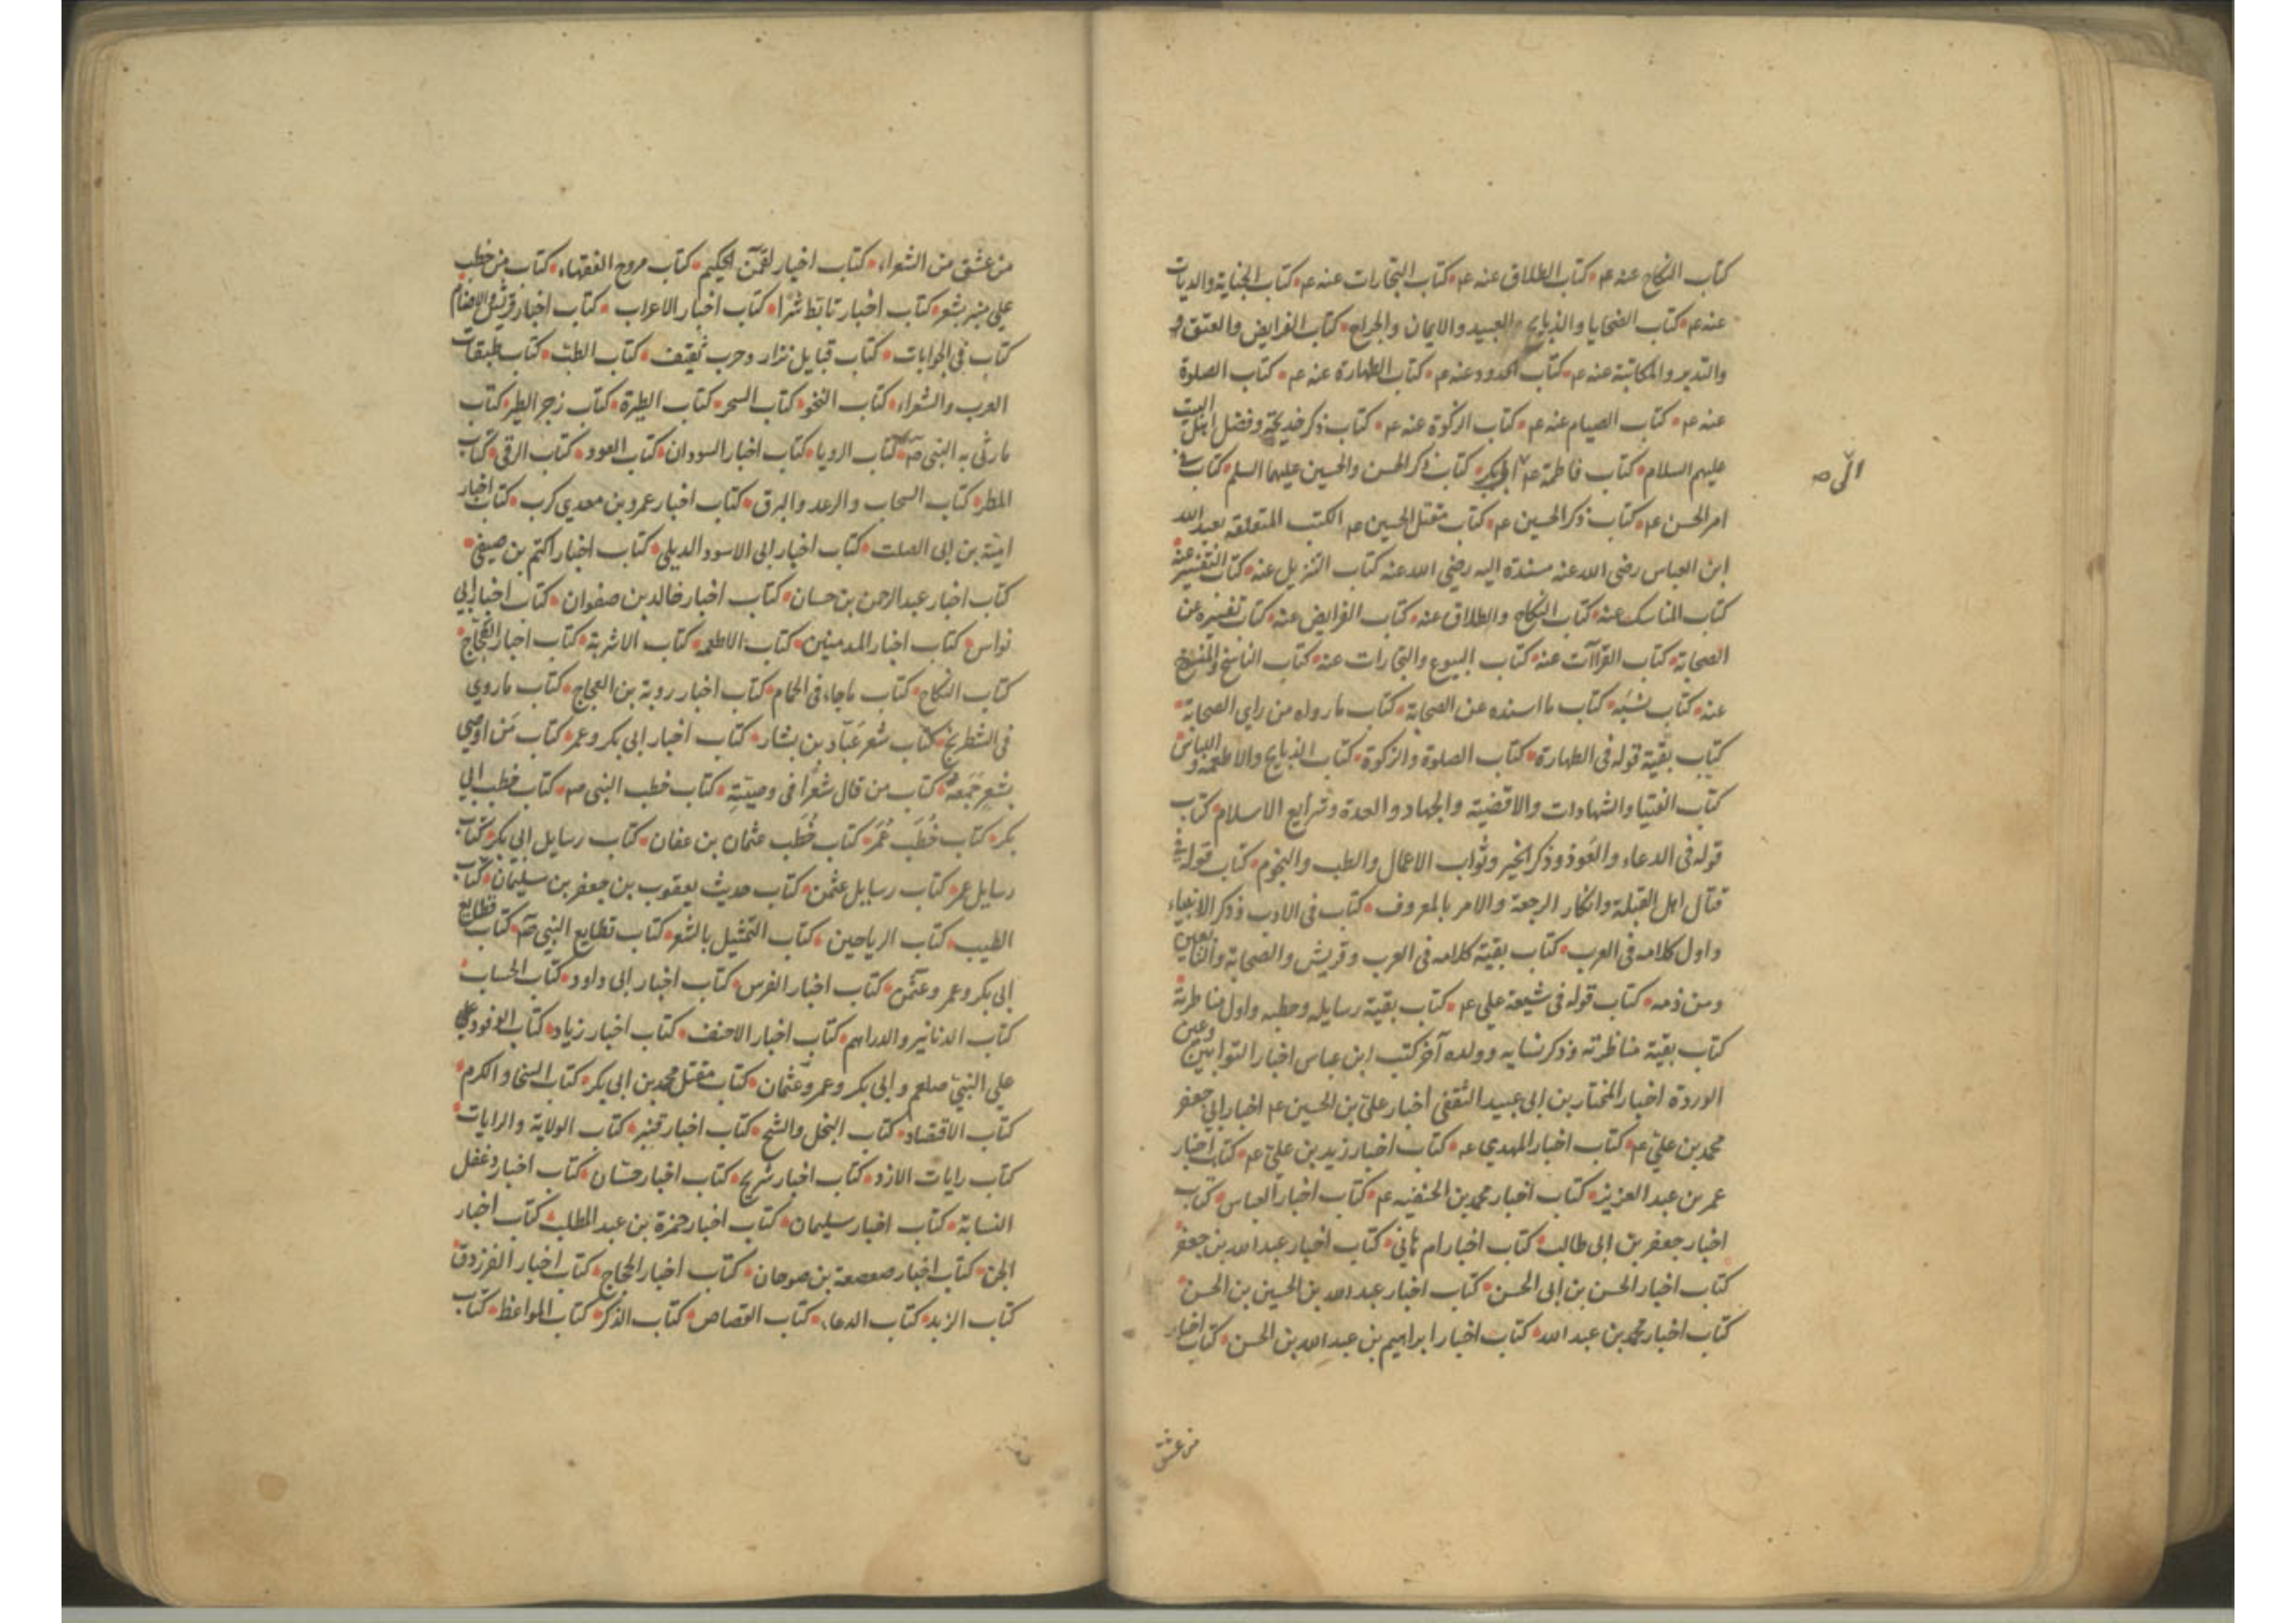 كتاب النكاح عنه ع م كتاب الطلاق عنه ع م كتاب التجارات عنه ع م كتاب الجناية والديات
عنه ع م كتاب الضحايا والذبايح والعبيد والايمان والجراح كتاب الفرايض والعتق
والتدبير والمكاتبة عنه ع م كتاب الحدود عنه ع م كتاب الطهارة عنه ع م كتاب الصلوة
عنه ع م كتاب الصيام عنه ع م كتاب الزكوة عنه ع م كتاب ذكر خديجة وفضل اهل البيت
عليهم السلام كتاب فاطمة ع م ابى بكر كتاب ذكر الحسن والحسين عليهما السلم كتاب في
الى ص
امر الحسن ع م كتاب ذكر الحسين ع م كتاب مقتل الحسين ع م الكتب المتعلقه بعبد الله
ابن العباس رضى الله عنه مسندة اليه رضي الله عنه كتاب التنزيل عنه كتاب التفسير عنه
كتاب المناسك عنه كتاب النكاح والطلاق عنه كتاب الفرايض عنه كتاب تفسيره عن
الصحابة كتاب القراآت عنه كتاب البيوع والتجارات عنه كتاب الناسخ والمنسوخ
عنه كتاب نسبه كتاب ما اسنده عن الصحابة كتاب ما رواه من راي الصحابة
كتاب بقية قوله فى الطهارة كتاب الصلوة والزكوة كتاب الذبايح والاطعمة واللباس
كتاب الفتيا والشهادات والاقضية والجهاد والعدة وشرايع الاسلام كتاب
قوله فى الدعاء والعوذ وذكر الخير وثواب الاعمال والطب والنجوم كتاب قوله في
قتال اهل القبلة وانكار الرجعة والامر بالمعروف كتاب فى الادب وذكر الانبياء
واول كلامه فى العرب كتاب بقية كلامه فى العرب وقريش والصحابة والتابعين
ومن ذمه كتاب قوله فى شيعة علي ع م كتاب بقية رسايله وخطبه واول مناظرته
كتاب بقية مناظرته وذكر نسايه وولده آخر كتب ابن عباس اخبار التوابين وعين
الوردة اخبار المختار بن ابى عبيد الثقفى اخبار علىّ بن الحسين ع م اخبار ابى جعفر
محمد بن عليّ ع م كتاب اخبار المهدي ع م كتاب اخبار زيد بن عليّ ع م كتاب اخبار
عمر بن عبد العزيز كتاب اخبار محمد بن الحنفيه ع م كتاب اخبار العباس كتاب
اخبار جعفر بن ابى طالب كتاب اخبار ام هانى كتاب اخبار عبد الله بن جعفر
كتاب اخبار الحسن بن ابى الحسن كتاب اخبار عبد الله بن الحسين بن الحسن
كتاب اخبار محمد بن عبد الله كتاب اخبار ابراهيم بن عبد الله بن الحسن كتاب اخبار
من عشق
من عشق من الشعراء كتاب اخبار لقمن الحكيم كتاب مروح الفقهاء كتاب من خطب
على منبر بشعر كتاب اخبار تابّط شرّا كتاب اخبار الاعراب كتاب اخبار قريش والاصنام
كتاب فى الجوابات كتاب قبايل نزار وحرب ثقيف كتاب الطبّ كتاب طبقات
العرب والشعراء كتاب النحو كتاب السحر كتاب الطيرة كتاب زجر الطير كتاب
ما رثى به النبى ص كتاب الرويا كتاب اخبار السودان كتاب العود كتاب الرقى كتاب
المطر كتاب السحاب والرعد والبرق كتاب اخبار عمرو بن معدي كرب كتاب اخبار
اميّة بن ابى الصلت كتاب اخبار ابى الاسود الديلى كتاب اخبار اكثم بن صيفى
كتاب اخبار عبد الرحمن بن حسان كتاب اخبار خالد بن صفوان كتاب اخبار ابي
نواس كتاب اخبار المدمنين كتاب الاطعمه كتاب الاشربة كتاب اخبار العجّاج
كتاب النكاح كتاب ما جاء فى الحمام كتاب اخبار روبة بن العجاج كتاب ما روي
فى الشطرنج كتاب شعر عبّاد بن بشار كتاب اخبار ابى بكر وعمر كتاب من اوصي
بشعر جمعه كتاب من قال شعرا فى وصيته كتاب خطب النبى ص كتاب خطب ابي
بكر كتاب خُطَب عُمَر كتاب خُطَب عثمان بن عفان كتاب رسايل ابى بكر كتاب
رسايل عمر كتاب رسايل عثمن كتاب حديث يعقوب بن جعفر بن سليمان كتاب
الطيب كتاب الرياحين كتاب التمثيل بالشعر كتاب قطايع النبى ص كتاب قطايع
ابى بكر وعمر وعثمن كتاب اخبار الفرس كتاب اخبار ابى داود كتاب الحساب
كتاب الدنانير والدراهم كتاب اخبار الاحنف كتاب اخبار زياد كتاب الوفود
على النبىّ صلعم وابى بكر وعمر وعثمان كتاب مقتل محمد بن ابى بكر كتاب السخا والكرم
كتاب الاقتصاد كتاب البخل والشح كتاب اخبار قنبر كتاب الولاية والرايات
كتاب رايات الازد كتاب اخبار شريح كتاب اخبار حسّان كتاب اخبار دغفل
النسابة كتاب اخبار سليمان كتاب اخبار حمزة بن عبد المطلب كتاب اخبار
الجن كتاب اخبار صعصعة بن صوحان كتاب اخبار الحجاج كتاب اخبار الفرزدق
كتاب الزهد كتاب الدعاء كتاب القصاص كتاب الذكر كتاب المواعظ كتاب